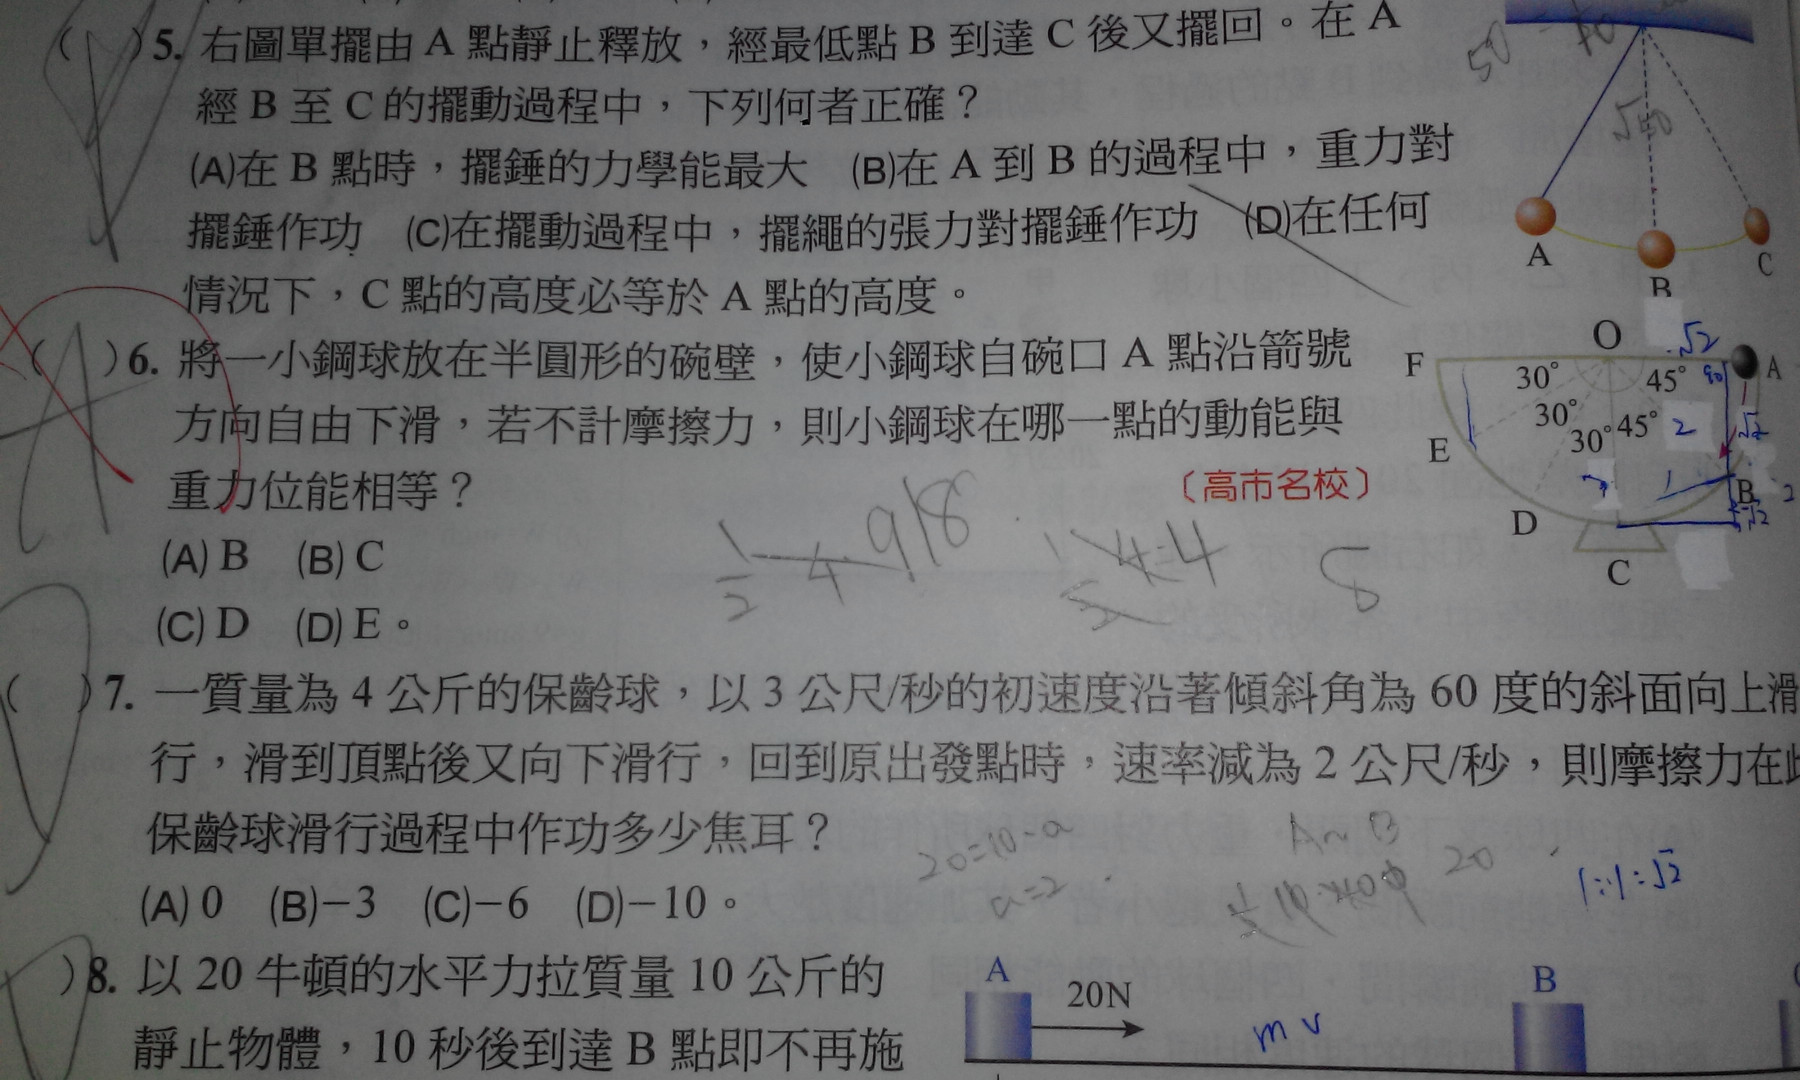 ( )5. 右圖單擺由 A 點靜止釋放,經最低點 B 到達 C 後又擺回。在 A
經 B 至 C 的擺動過程中,下列何者正確?
(A)在 B 點時,擺錘的力學能最大 (B)在 A 到 B 的過程中,重力對
擺錘作功 (C)在擺動過程中,擺繩的張力對擺錘作功 (D)在任何
情況下,C 點的高度必等於 A 點的高度。
50
√50
A
B
C
( )6. 將一小鋼球放在半圓形的碗壁,使小鋼球自碗口 A 點沿箭號
方向自由下滑,若不計摩擦力,則小鋼球在哪一點的動能與
重力位能相等? 〔高市名校〕
(A) B (B) C
(C) D (D) E。
A
O
√2
F
A
30° 45° 90
30° 45° 2 √2
30°
E
B 2
D
C
1/2 4 9 18
4=4
8
( )7. 一質量為 4 公斤的保齡球,以 3 公尺/秒的初速度沿著傾斜角為 60 度的斜面向上滑
行,滑到頂點後又向下滑行,回到原出發點時,速率減為 2 公尺/秒,則摩擦力在
保齡球滑行過程中作功多少焦耳?
(A) 0 (B)−3 (C)−6 (D)−10。
20=10·a
a=2
A~B
20
1:1:√2
)8. 以 20 牛頓的水平力拉質量 10 公斤的
靜止物體,10 秒後到達 B 點即不再施
A
20N
B
mv